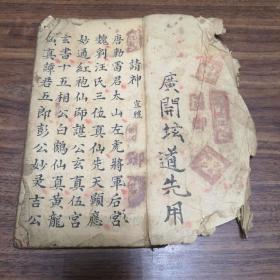 廣開坛道先用
請神 宣經
唐勅當君太山左堯將軍后宮
魏劉汪氏三位真仙先天顕應
妙通紅袍仙師諶公玄真伍宮
玄書十五相公白鶴仙真黃龍
仙真譚君五郎彭公妙灵吉公